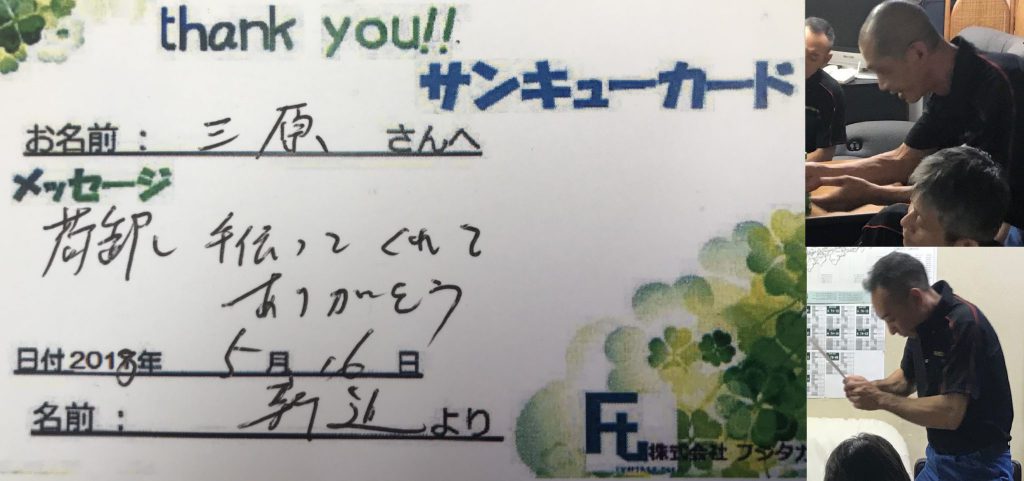 thank you!!
サンキューカード
お名前： 三原 さんへ
メッセージ
荷卸し 手伝って くれて
ありがとう
日付2018年 5月16日
名前： より
株式会社 フジタカ